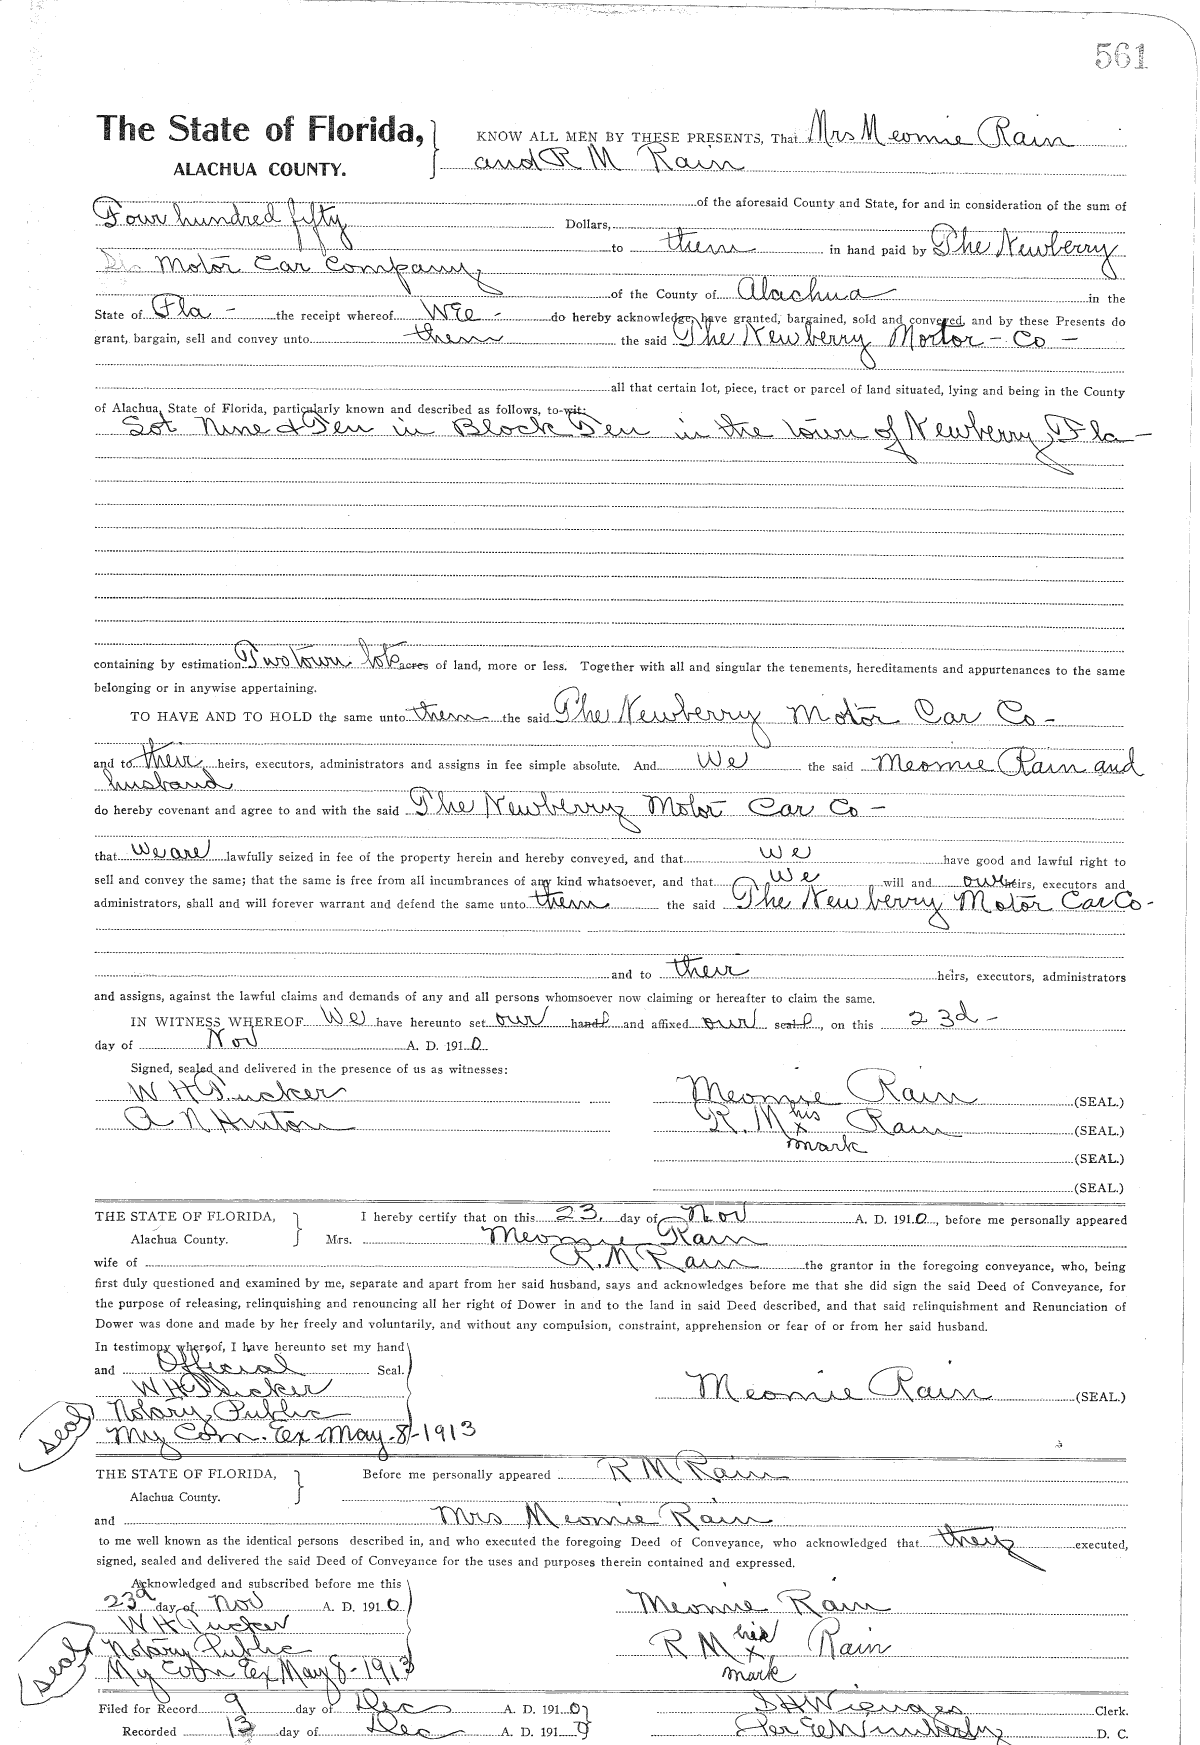 561
The State of Florida, } KNOW ALL MEN BY THESE PRESENTS, That Mrs Meomie Rain
ALACHUA COUNTY. and R M Rain
of the aforesaid County and State, for and in consideration of the sum of
Four hundred fifty Dollars,
to them in hand paid by The Newberry
Motor Car Company
of the County of Alachua in the
State of Fla - the receipt whereof We - do hereby acknowledge, have granted, bargained, sold and conveyed, and by these Presents do
grant, bargain, sell and convey unto them the said The Newberry Mortor - Co -
all that certain lot, piece, tract or parcel of land situated, lying and being in the County
of Alachua, State of Florida, particularly known and described as follows, to-wit:
Lot Nine & Ten in Block Ten in the town of Newberry, Fla -
containing by estimation Two town lots acres of land, more or less. Together with all and singular the tenements, hereditaments and appurtenances to the same
belonging or in anywise appertaining.
TO HAVE AND TO HOLD the same unto them the said The Newberry Motor Car Co -
and to their heirs, executors, administrators and assigns in fee simple absolute. And We the said Meomie Rain and
husband
do hereby covenant and agree to and with the said The Newberry Motor Car Co -
that we are lawfully seized in fee of the property herein and hereby conveyed, and that we have good and lawful right to
sell and convey the same; that the same is free from all incumbrances of any kind whatsoever, and that We will and our heirs, executors and
administrators, shall and will forever warrant and defend the same unto them the said The Newberry Motor Car Co -
and to their heirs, executors, administrators
and assigns, against the lawful claims and demands of any and all persons whomsoever now claiming or hereafter to claim the same.
IN WITNESS WHEREOF We have hereunto set our hand and affixed our seal, on this 23d -
day of Nov A. D. 1910
Signed, sealed and delivered in the presence of us as witnesses:
W H Tucker Meomie Rain (SEAL.)
A N Hinton R. M his x mark Rain (SEAL.)
(SEAL.)
(SEAL.)
THE STATE OF FLORIDA, } I hereby certify that on this 23. day of Nov A. D. 1910, before me personally appeared
Alachua County. Mrs. Meomie Rain
wife of R. M Rain the grantor in the foregoing conveyance, who, being
first duly questioned and examined by me, separate and apart from her said husband, says and acknowledges before me that she did sign the said Deed of Conveyance, for
the purpose of releasing, relinquishing and renouncing all her right of Dower in and to the land in said Deed described, and that said relinquishment and Renunciation of
Dower was done and made by her freely and voluntarily, and without any compulsion, constraint, apprehension or fear of or from her said husband.
In testimony whereof, I have hereunto set my hand
and Official Seal.
W H Tucker Meomie Rain (SEAL.)
Notary Public
seal My Com. Ex May-8-1913
THE STATE OF FLORIDA, } Before me personally appeared R M Rain
Alachua County.
and Mrs Meomie Rain
to me well known as the identical persons described in, and who executed the foregoing Deed of Conveyance, who acknowledged that they executed,
signed, sealed and delivered the said Deed of Conveyance for the uses and purposes therein contained and expressed.
Acknowledged and subscribed before me this
23d day of Nov A. D. 1910 Meomie Rain
W H Tucker
Notary Public R M his x mark Rain
seal My Com Ex May 8-1913
Filed for Record 9 day of Dec A. D. 1910 S H Wienges Clerk.
Recorded 13 day of Dec A. D. 1910 Per E Wimberly D. C.